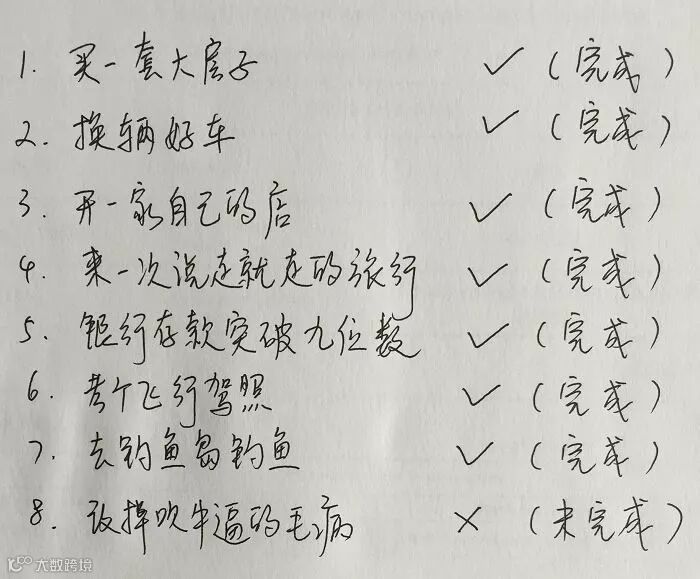 1. 买一套大房子 ✓ (完成)
2. 换辆好车 ✓ (完成)
3. 开一家自己的店 ✓ (完成)
4. 来一次说走就走的旅行 ✓ (完成)
5. 银行存款突破九位数 ✓ (完成)
6. 考个飞行驾照 ✓ (完成)
7. 去钓鱼岛钓鱼 ✓ (完成)
8. 改掉吹牛逼的毛病 × (未完成)
大数跨境